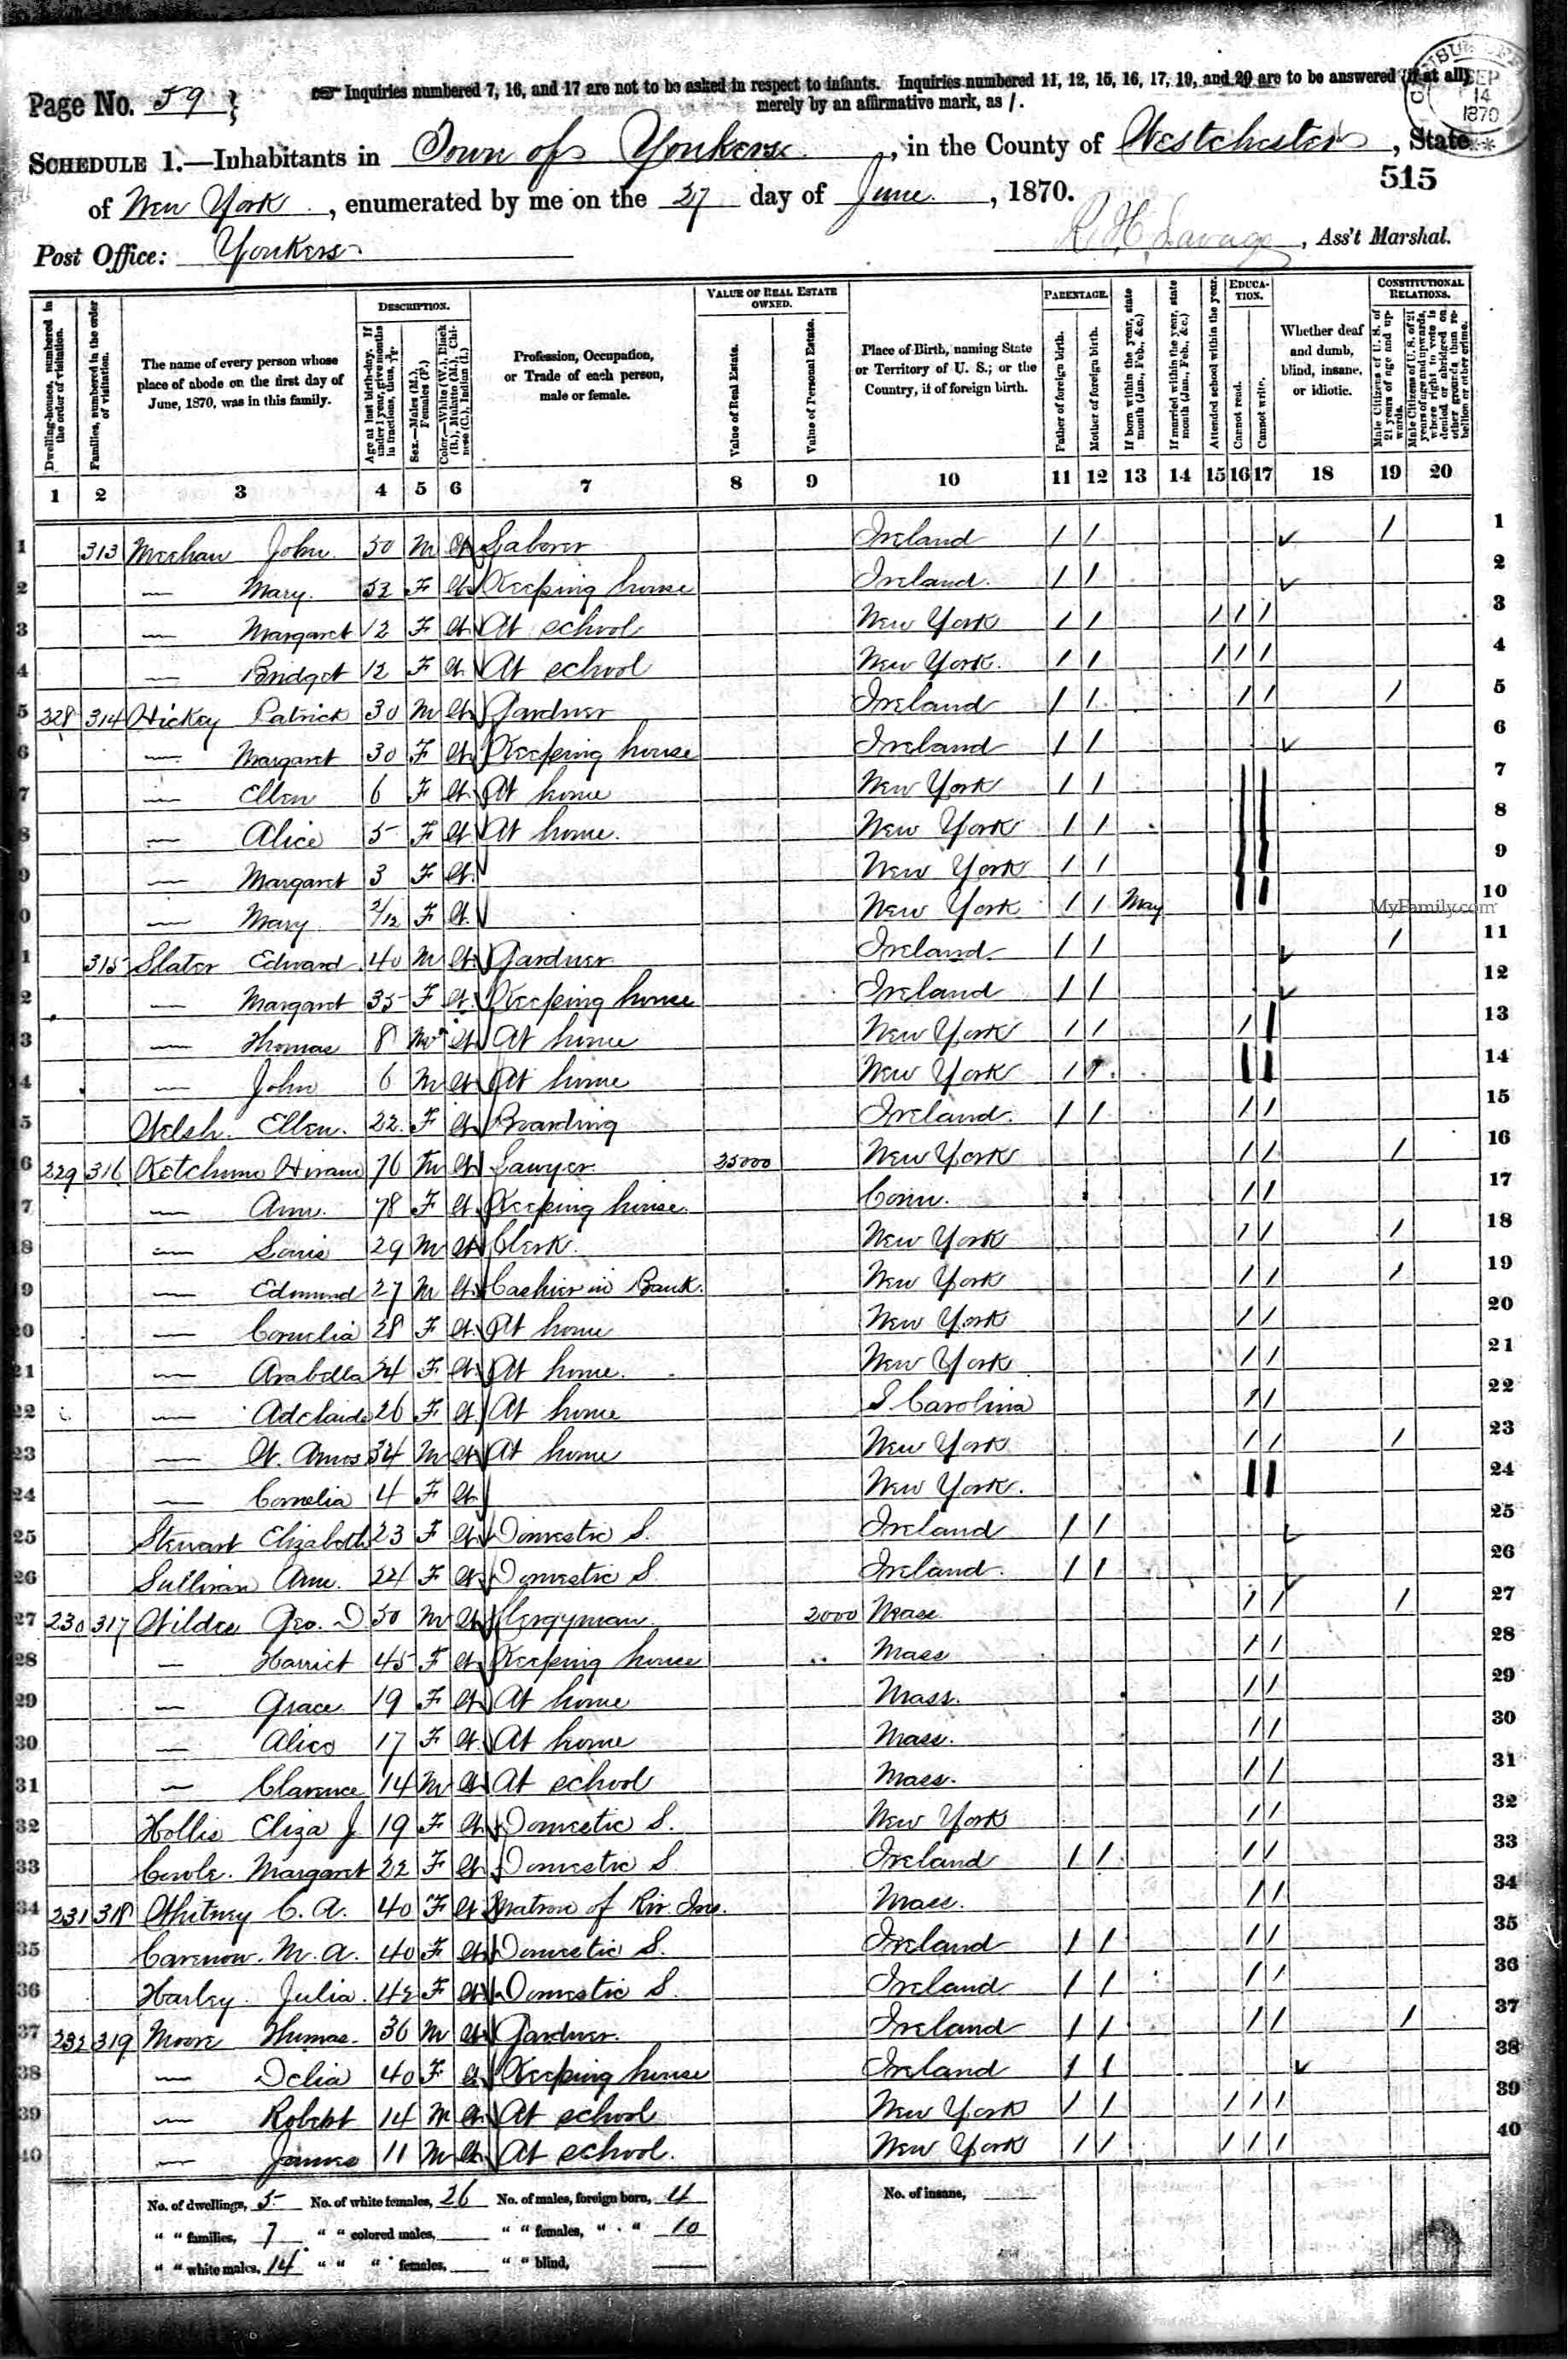 Page No. 59
Inquiries numbered 7, 16, and 17 are not to be asked in respect to infants. Inquiries numbered 11, 12, 15, 16, 17, 19, and 20 are to be answered (if at all)
merely by an affirmative mark, as /.
SEP
14
1870
SCHEDULE 1.—Inhabitants in Town of Yonkers, in the County of Westchester, State
515
of New York, enumerated by me on the 27 day of June, 1870.
Post Office: Yonkers R. H. Savage, Ass't Marshal.
Dwelling-houses, numbered in the order of visitation.
Families, numbered in the order of visitation.
The name of every person whose place of abode on the first day of June, 1870, was in this family.
DESCRIPTION.
Age at last birth-day. If under 1 year, give months in fractions, thus, 3/12.
Sex.—Males (M.), Females (F.)
Color.—White (W.), Black (B.), Mulatto (M.), Chinese (C.), Indian (I.)
Profession, Occupation, or Trade of each person, male or female.
VALUE OF REAL ESTATE OWNED.
Value of Real Estate.
Value of Personal Estate.
Place of Birth, naming State or Territory of U. S.; or the Country, if of foreign birth.
PARENTAGE.
Father of foreign birth.
Mother of foreign birth.
If born within the year, state month (Jan., Feb., &c.)
If married within the year, state month (Jan., Feb., &c.)
Attended school within the year.
EDUCATION.
Cannot read.
Cannot write.
Whether deaf and dumb, blind, insane, or idiotic.
CONSTITUTIONAL RELATIONS.
Male Citizens of U. S. of 21 years of age and upwards.
Male Citizens of U. S. of 21 years of age and upwards, where right to vote is denied or abridged on other grounds than rebellion or other crime.
1 2 3 4 5 6 7 8 9 10 11 12 13 14 15 16 17 18 19 20
1 313 Meehan John 50 M W Laborer Ireland / / / 1
2 — Mary 52 F W Keeping house Ireland / / 2
3 — Margaret 12 F W At school New York / / / / / 3
4 — Bridget 12 F W At school New York / / / / / 4
5 328 314 Hickey Patrick 30 M W Gardner Ireland / / / / / 5
6 — Margaret 30 F W Keeping house Ireland / / 6
7 — Ellen 6 F W At home New York / / / / 7
8 — Alice 5 F W At home New York / / / / 8
9 — Margaret 3 F W New York / / / / 9
0 — Mary 2/12 F W New York / / May / / 10
MyFamily.com
1 315 Slater Edward 40 M W Gardner Ireland / / / 11
2 — Margaret 35 F W Keeping house Ireland / / 12
3 — Thomas 8 M W At home New York / / / / 13
4 — John 6 M W At home New York / / / / 14
5 Welsh Ellen 22 F W Boarding Ireland / / / / 15
6 229 316 Ketchum Hiram 76 M W Lawyer 35000 New York / / / 16
7 — Ann 78 F W Keeping house Conn. / / 17
8 — Louis 29 M W Clerk New York / / / 18
9 — Edmund 27 M W Cashier in Bank New York / / / 19
20 — Cornelia 28 F W At home New York / / 20
21 — Arabella 24 F W At home New York / / 21
22 — Adelaide 26 F W At home S Carolina / / 22
23 — W. Amos 34 M W At home New York / / / 23
24 — Cornelia 4 F W New York / / 24
25 Stewart Elizabeth 23 F W Domestic S. Ireland / / 25
26 Sullivan Ann 24 F W Domestic S. Ireland / / 26
27 230 317 Wildes Geo. D 50 M W Clergyman 2000 Mass / / / 27
28 — Harriet 45 F W Keeping house Mass / / 28
29 — Grace 19 F W At home Mass. / / 29
30 — Alice 17 F W At home Mass. / / 30
31 — Clarence 14 M W At school Mass. / / 31
32 Hollis Eliza J 19 F W Domestic S. New York / / 32
33 Margaret 22 F W Domestic S Ireland / / / / 33
34 231 318 Whitney C. A. 40 F W Matron of Riv. Ins. Mass. / / 34
35 M. A. 40 F W Domestic S. Ireland / / / / 35
36 Harley Julia 42 F W Domestic S. Ireland / / / / 36
37 232 319 Moore Thomas 36 M W Gardner Ireland / / / / / 37
38 — Delia 40 F W Keeping house Ireland / / 38
39 — Robert 14 M W At school New York / / / / / 39
40 — James 11 M W At school New York / / / / / 40
No. of dwellings, 5 No. of white females, 26 No. of males, foreign born, 4 No. of insane,
" " families, 7 " " colored males, " " females, " " 10
" " white males, 14 " " " females, " " blind,